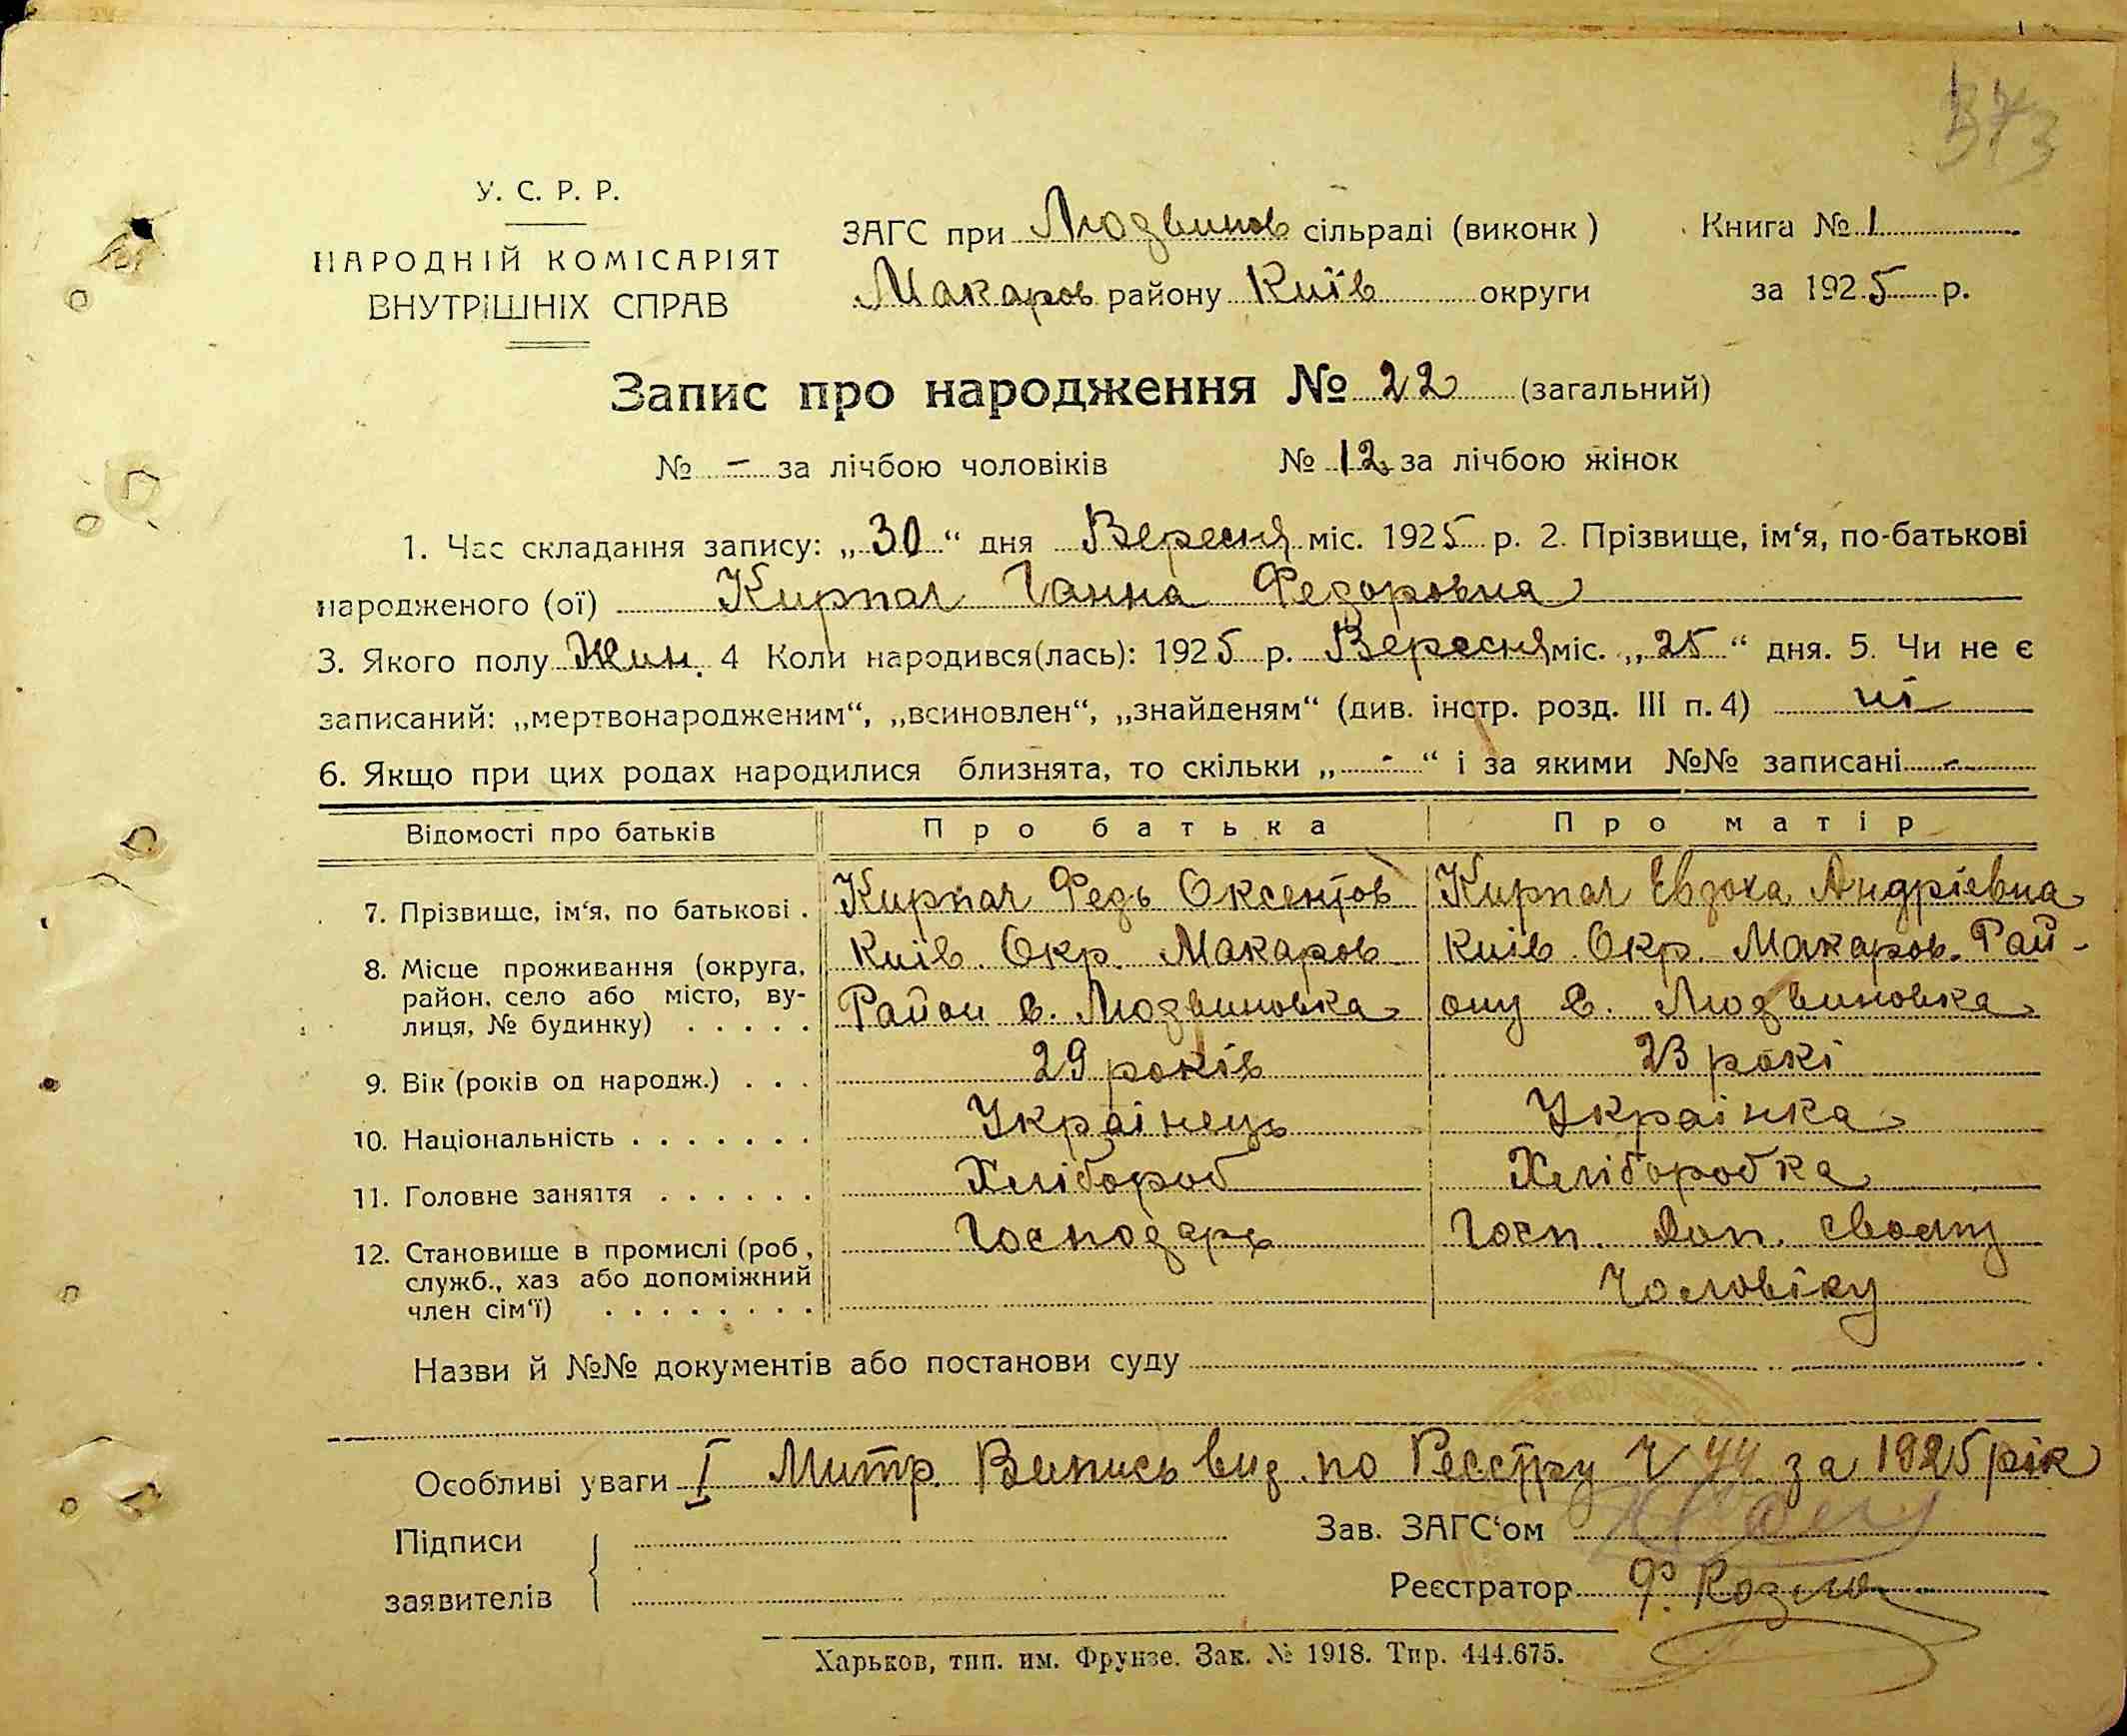 373
У. С. Р. Р.
НАРОДНІЙ КОМІСАРІЯТ
ВНУТРІШНІХ СПРАВ
ЗАГС при Людвинов сільраді (виконк)
Макаров району Київ округи
Книга № 1
за 1925 р.
Запис про народження № 22 (загальний)
№ - за лічбою чоловіків № 12 за лічбою жінок
1. Час складання запису: „30“ дня Вересня міс. 1925 р. 2. Прізвище, ім‘я, по-батькові
народженого (ої) Кирпач Ганна Федоровна
3. Якого полу Жин. 4 Коли народився(лась): 1925 р. Вересня міс. „25“ дня. 5. Чи не є
записаний: „мертвонародженим“, „всиновлен“, „знайденям“ (див. інстр. розд. III п. 4) ні
6. Якщо при цих родах народилися близнята, то скільки „-“ і за якими №№ записані -
Відомості про батьків Про батька Про матір
7. Прізвище, ім‘я, по батькові . Кирпач Федь Оксентов Кирпач Евдоха Андріевна
8. Місце проживання (округа, Київ. Окр. Макаров Київ. Окр. Макаров. Рай-
район, село або місто, ву-
лиця, № будинку) . . . . . Район с. Людвиновка ону с. Людвиновка
9. Вік (років од народж.) . . . 29 років 23 рокі
10. Національність . . . . . . . Українець Українка
11. Головне заняття . . . . . . Хлібороб Хлібородка
12. Становище в промислі (роб, Господарь Госп. Доп. своему
служб., хаз або допоміжний
член сім‘ї) . . . . . . . . Чоловіку
Назви й №№ документів або постанови суду
Особливі уваги I Митр. Випись вид. по Реєстру Ч 44 за 1925 рік
Підписи
заявителів
Зав. ЗАГС‘ом
Реєстратор Ф. Козло
Харьков, тип. им. Фрунзе. Зак. № 1918. Тир. 444.675.